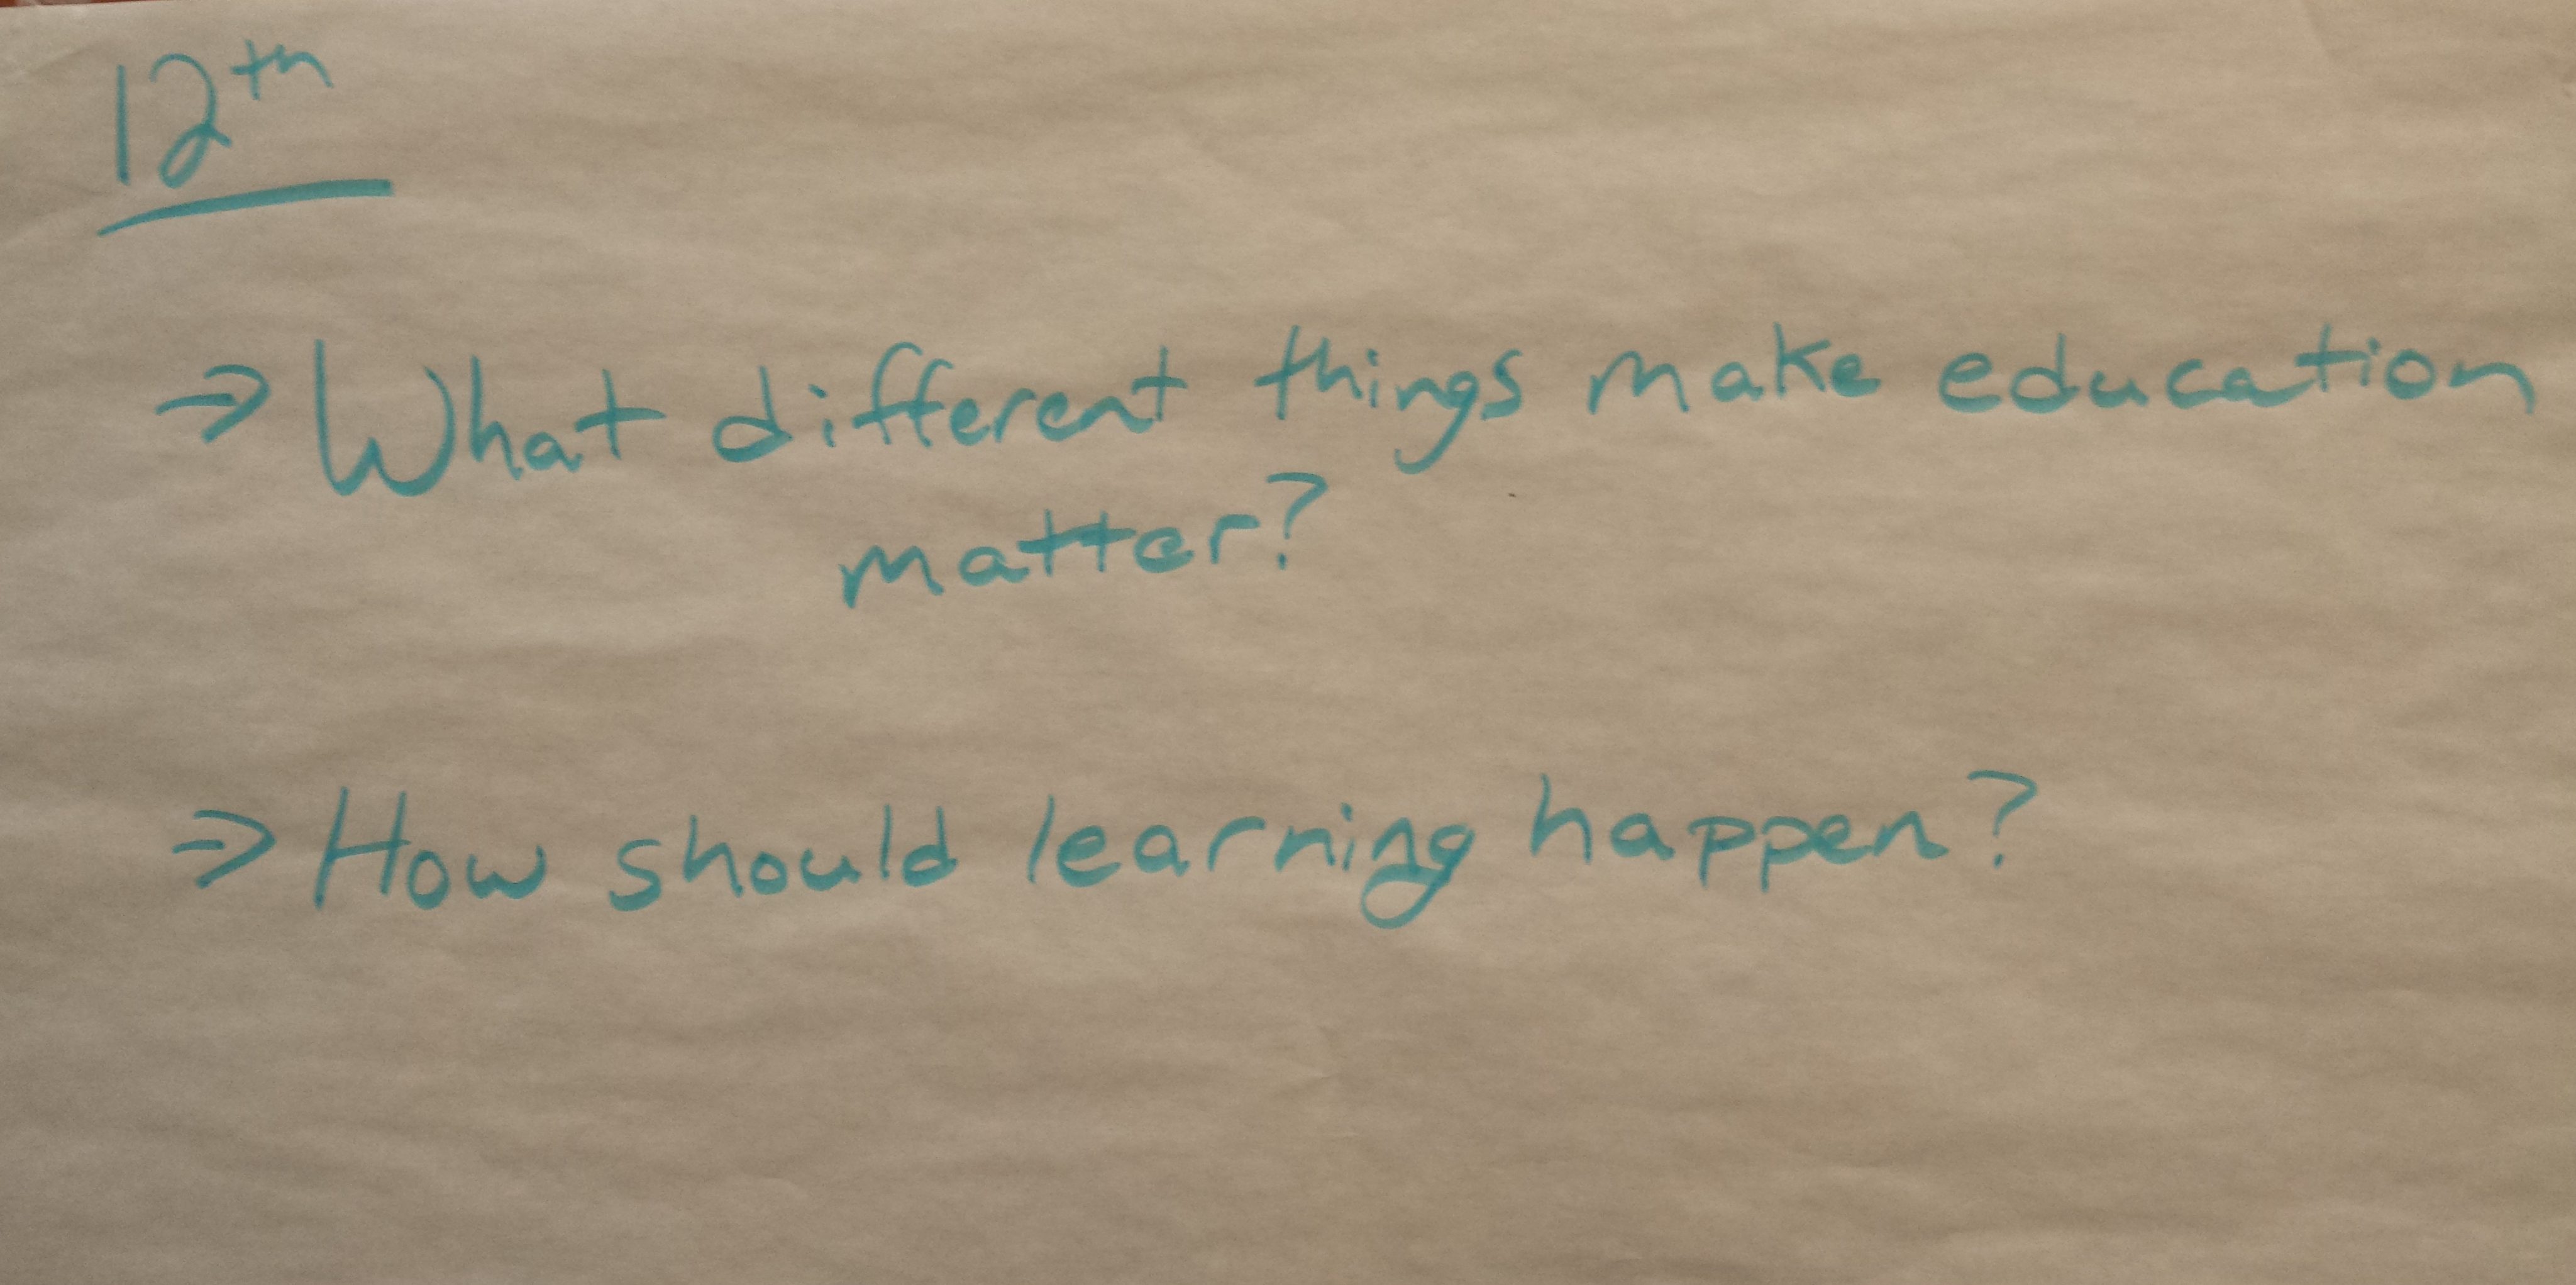 12th
⇒ What different things make education
matter?
⇒ How should learning happen?